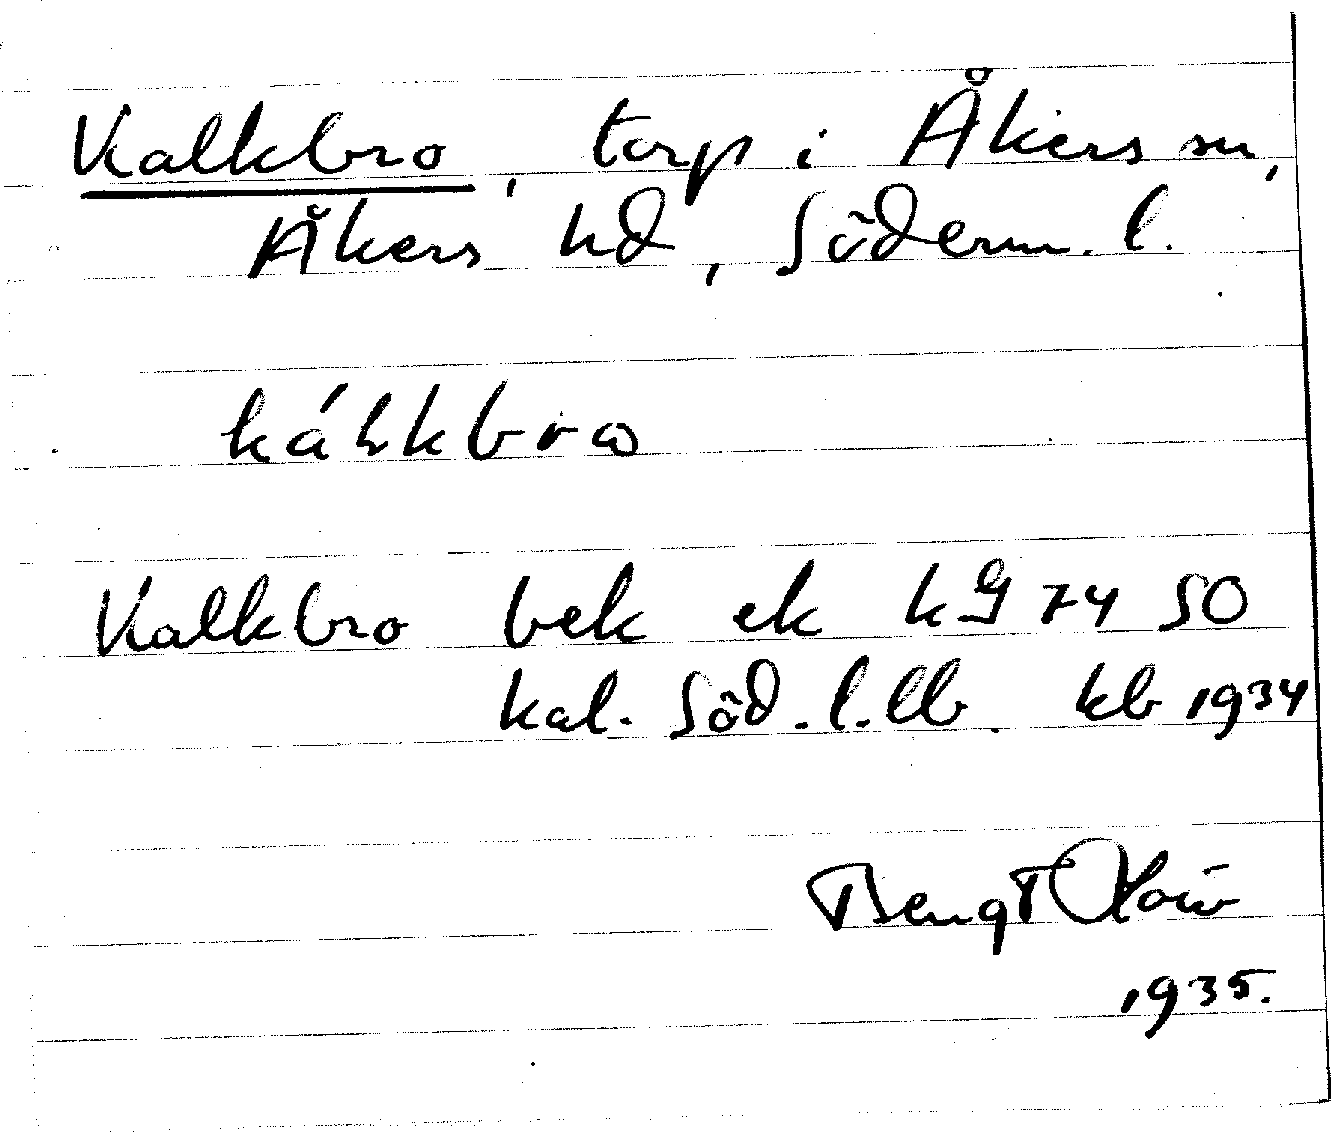 Kalkbro, torp i Åkers sn,
Åkers hd, Söderm. l.
kálkbro
Kalkbro bek ek kG 74 50
kal. Söd. l. llb. kb 1934
Bengt
1935.